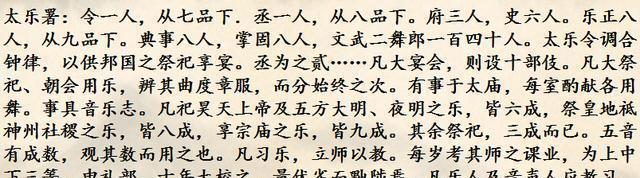 太乐署：令一人，从七品下．丞一人，从八品下。府三人，史六人。乐正八
人，从九品下。典事八人，掌固八人，文武二舞郎一百四十人。太乐令调合
钟律，以供邦国之祭祀享宴。丞为之贰……凡大宴会，则设十部伎。凡大祭
祀、朝会用乐，辨其曲度章服，而分始终之次。有事于太庙，每室酌献各用
舞。事具音乐志。凡祀昊天上帝及五方大明、夜明之乐，皆六成，祭皇地祇
神州社稷之乐，皆八成，享宗庙之乐，皆九成。其余祭祀，三成而已。五音
有成数，观其数而用之也。凡习乐，立师以教。每岁考其师之课业，为上中
下三等，申礼部。十年大校之，量优劣而黜陟焉。凡乐人及音声人应教习，